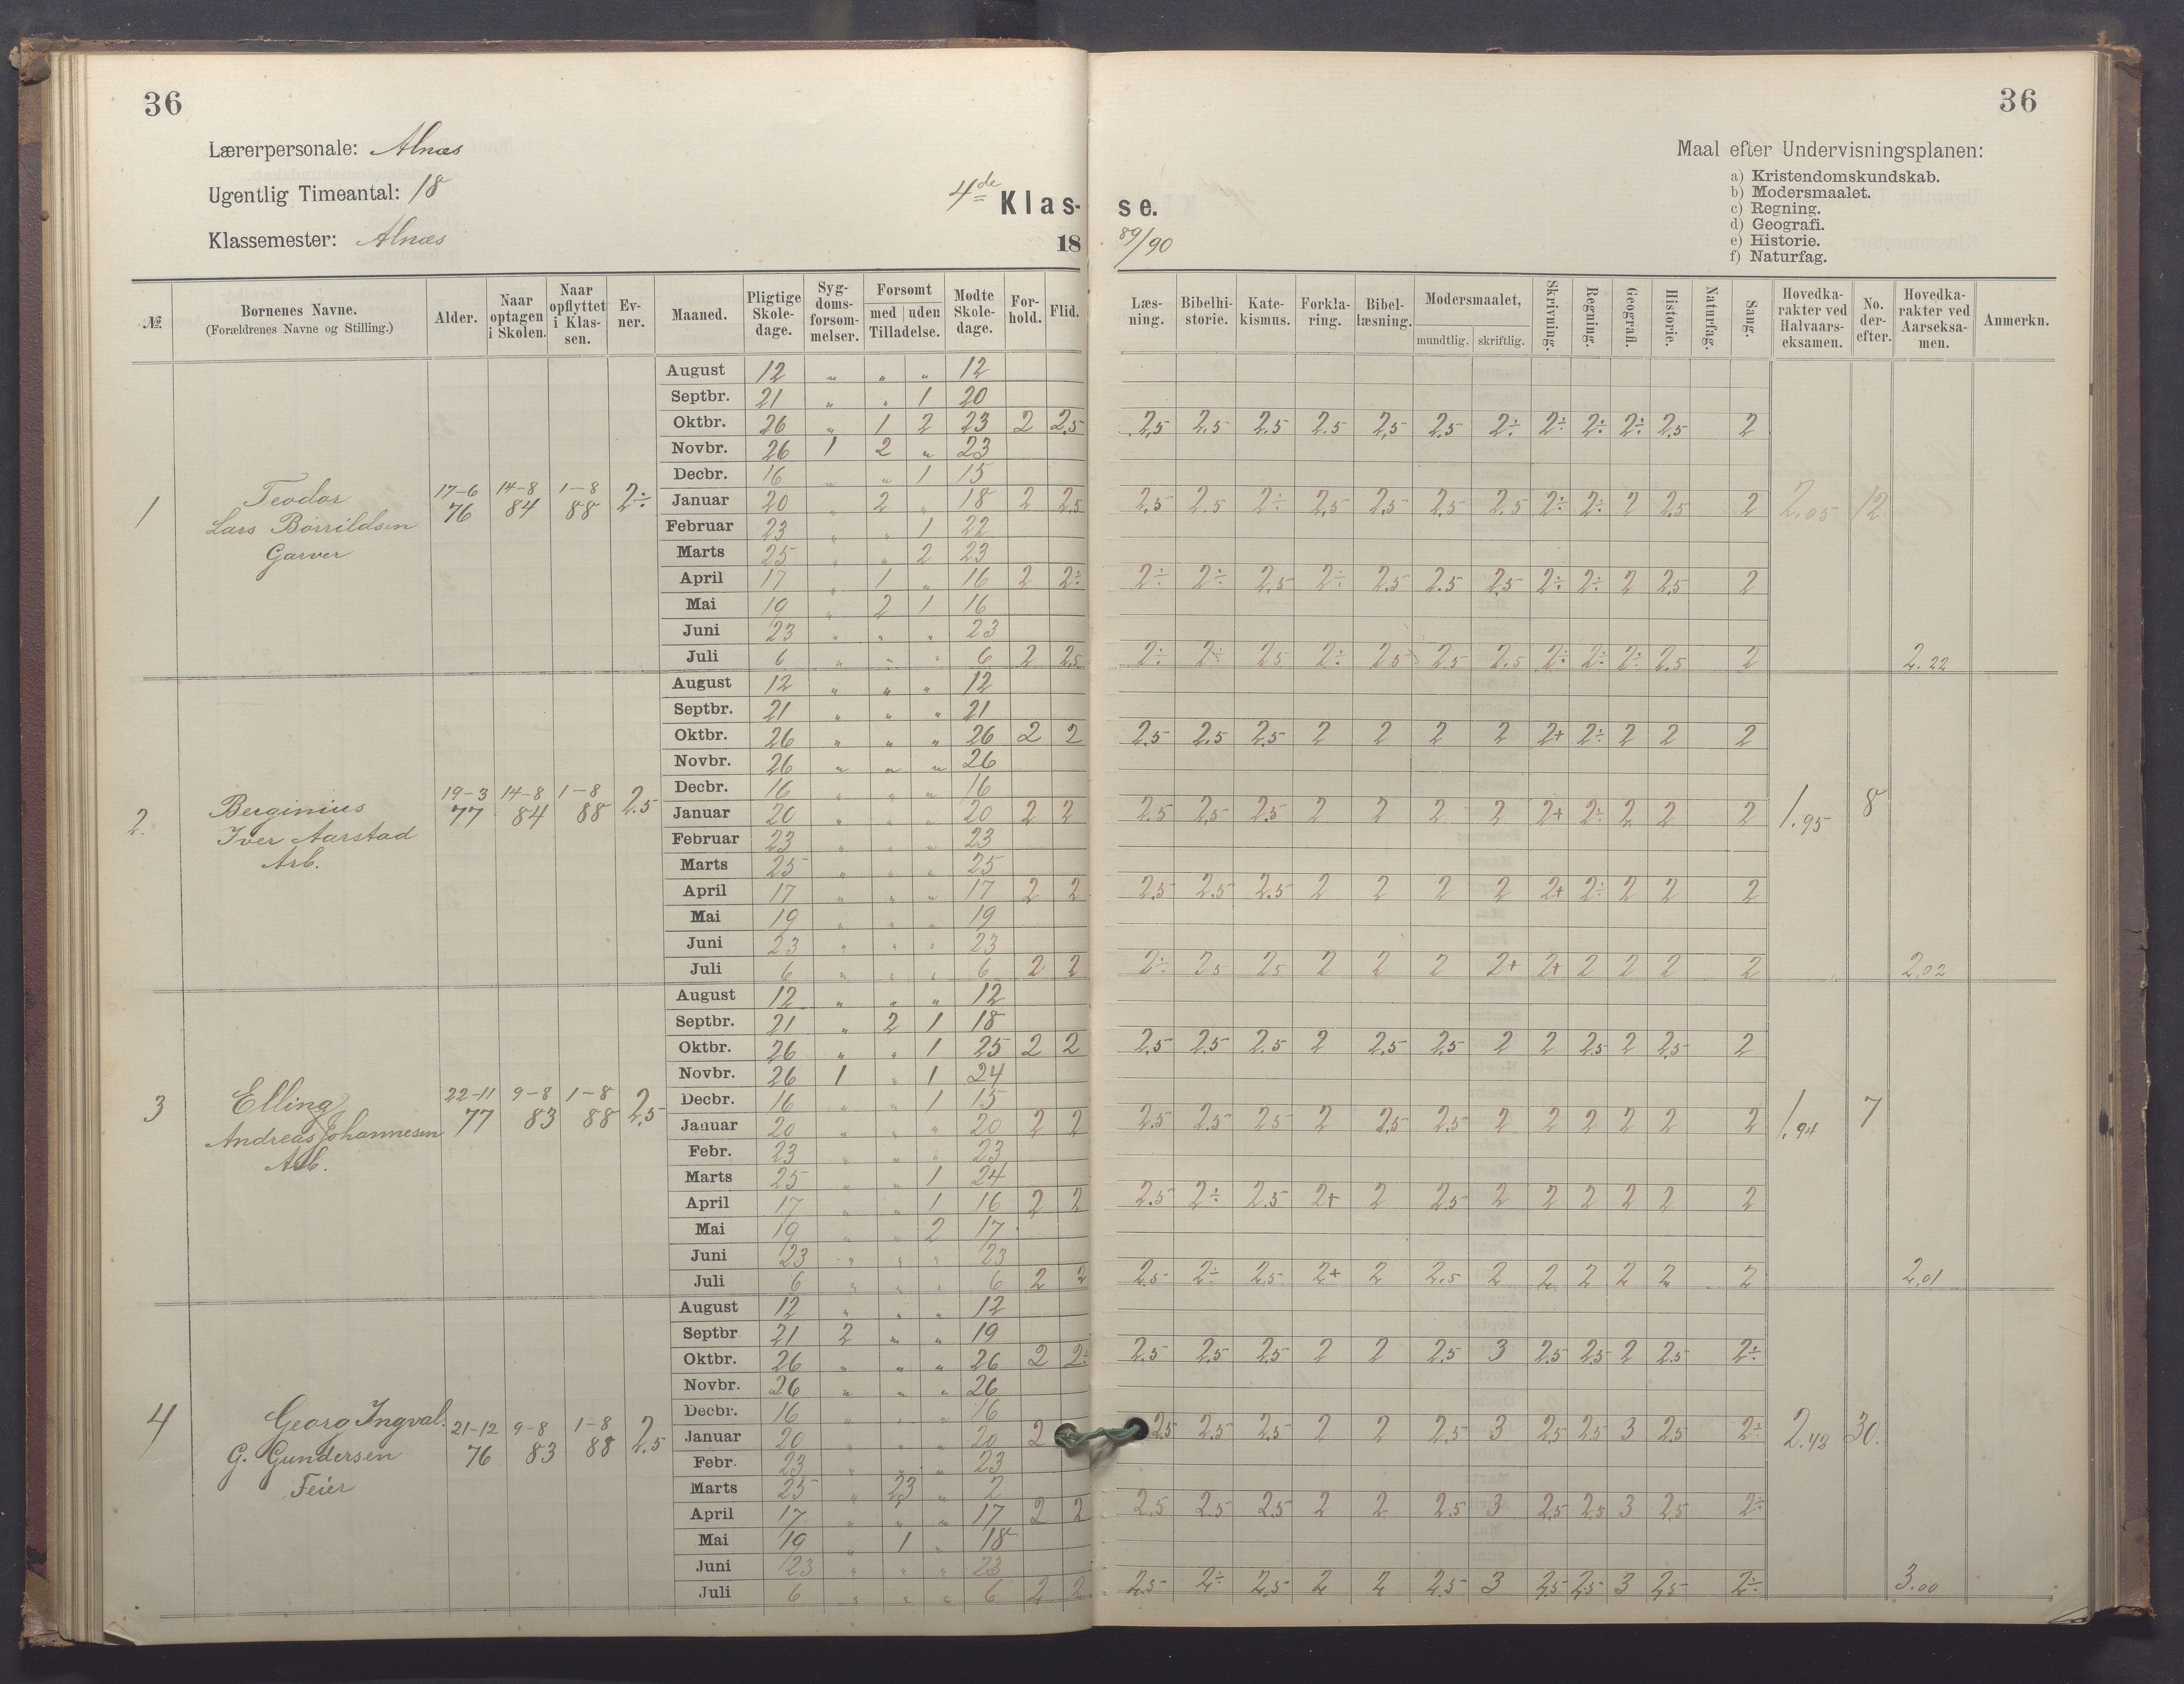 36
36
Lærerpersonale: Alnæs
Ugentlig Timeantal: 18
Klassemester: Alnæs
4de Klas- se.
18 89/90
Maal efter Undervisningsplanen:
a) Kristendomskundskab.
b) Modersmaalet.
c) Regning.
d) Geografi.
e) Historie.
f) Naturfag.
№ Børnenes Navne. (Forældrenes Navne og Stilling.) Alder. Naar optagen i Skolen. Naar opflyttet i Klassen. Evner. Maaned. Pligtige Skoledage. Sygdomsforsømmelser. Forsømt med uden Tilladelse. Mødte Skoledage. Forhold. Flid. Læsning. Bibelhistorie. Katekismus. Forklaring. Bibellæsning. Modersmaalet, mundtlig. skriftlig. Skrivning. Regning. Geografi. Historie. Naturfag. Sang. Hovedkarakter ved Halvaarseksamen. No. derefter. Hovedkarakter ved Aarseksamen. Anmerkn.
1 Teodor
Lars Børrildsen
Garver
17-6 76 14-8 84 1-8 88 2÷
August 12 " " " 12
Septbr. 21 " " 1 20
Oktbr. 26 " 1 2 23 2 2,5 2,5 2.5 2.5 2.5 2,5 2.5 2÷ 2÷ 2÷ 2÷ 2,5 2
Novbr. 26 1 2 " 23
Decbr. 16 " " 1 15
Januar 20 " 2 " 18 2 2,5 2,5 2.5 2÷ 2,5 2,5 2,5 2.5 2÷ 2÷ 2 2,5 2 2,05 12
Februar 23 " " 1 22
Marts 25 " " 2 23
April 17 " 1 " 16 2 2÷ 2÷ 2÷ 2,5 2÷ 2,5 2.5 2,5 2÷ 2÷ 2 2,5 2
Mai 19 " 2 1 16
Juni 23 " " " 23
Juli 6 " " " 6 2 2,5 2÷ 2÷ 25 2÷ 25 25 2.5 2÷ 2÷ 2÷ 2,5 2 2.22
2. Berginius
Iver Aarstad
Arb.
19-3 77 14-8 84 1-8 88 2.5
August 12 " " " 12
Septbr. 21 " " " 21
Oktbr. 26 " " " 26 2 2 2,5 2.5 2,5 2 2 2 2 2+ 2÷ 2 2 2
Novbr. 26 " " " 26
Decbr. 16 " " " 16
Januar 20 " " " 20 2 2 2.5 2,5 2,5 2 2 2 2 2+ 2÷ 2 2 2 1.95 8
Februar 23 " " " 23
Marts 25 " " " 25
April 17 " " " 17 2 2 2,5 2.5 2.5 2 2 2 2 2+ 2÷ 2 2 2
Mai 19 " " " 19
Juni 23 " " " 23
Juli 6 " " " 6 2 2 2÷ 25 25 2 2 2 2+ 2+ 2 2 2 2 2,02
3 Elling
Andreas Johannesen
Arb.
22-11 77 9-8 83 1-8 88 2,5
August 12 " " " 12
Septbr. 21 " 2 1 18
Oktbr. 26 " " 1 25 2 2 2,5 2,5 2.5 2 2,5 2,5 2 2 2,5 2 2,5 2
Novbr. 26 1 " 1 24
Decbr. 16 " " 1 15
Januar 20 " " " 20 2 2 2,5 2,5 2,5 2 2,5 2,5 2 2 2 2 2 2 1.94 7
Febr. 23 " " " 23
Marts 25 " " 1 24
April 17 " " 1 16 2 2 2.5 2÷ 2.5 2+ 2 2,5 2 2 2 2 2 2
Mai 19 " " 2 17
Juni 23 " " " 23
Juli 6 " " " 6 2 2 2,5 2÷ 2,5 2+ 2 2.5 2 2 2 2 2 2 2,01
4 Georg Ingval.
G. Gundersen
Feier
21-12 76 9-8 83 1-8 88 2.5
August 12 " " " 12
Septbr 21 2 " " 19
Oktbr. 26 " " " 26 2 2÷ 2.5 2,5 2,5 2 2 2,5 3 2,5 2,5 2 2,5 2÷
Novbr. 26 " " " 26
Decbr. 16 " " " 16
Januar 20 " " " 20 2 25 2,5 2,5 2 2 2,5 3 2,5 2,5 3 2,5 2÷ 2.42 30.
Febr. 23 " " " 23
Marts 25 " 23 " 2
April 17 " " " 17 2 2 2,5 2.5 2,5 2 2 2,5 3 2,5 2,5 3 2,5 2÷
Mai 19 " 1 " 18
Juni 23 " " " 23
Juli 6 " " " 6 2 2 2,5 2÷ 2,5 2 2 2,5 3 2,5 2,5 3 2,5 2÷ 3.00